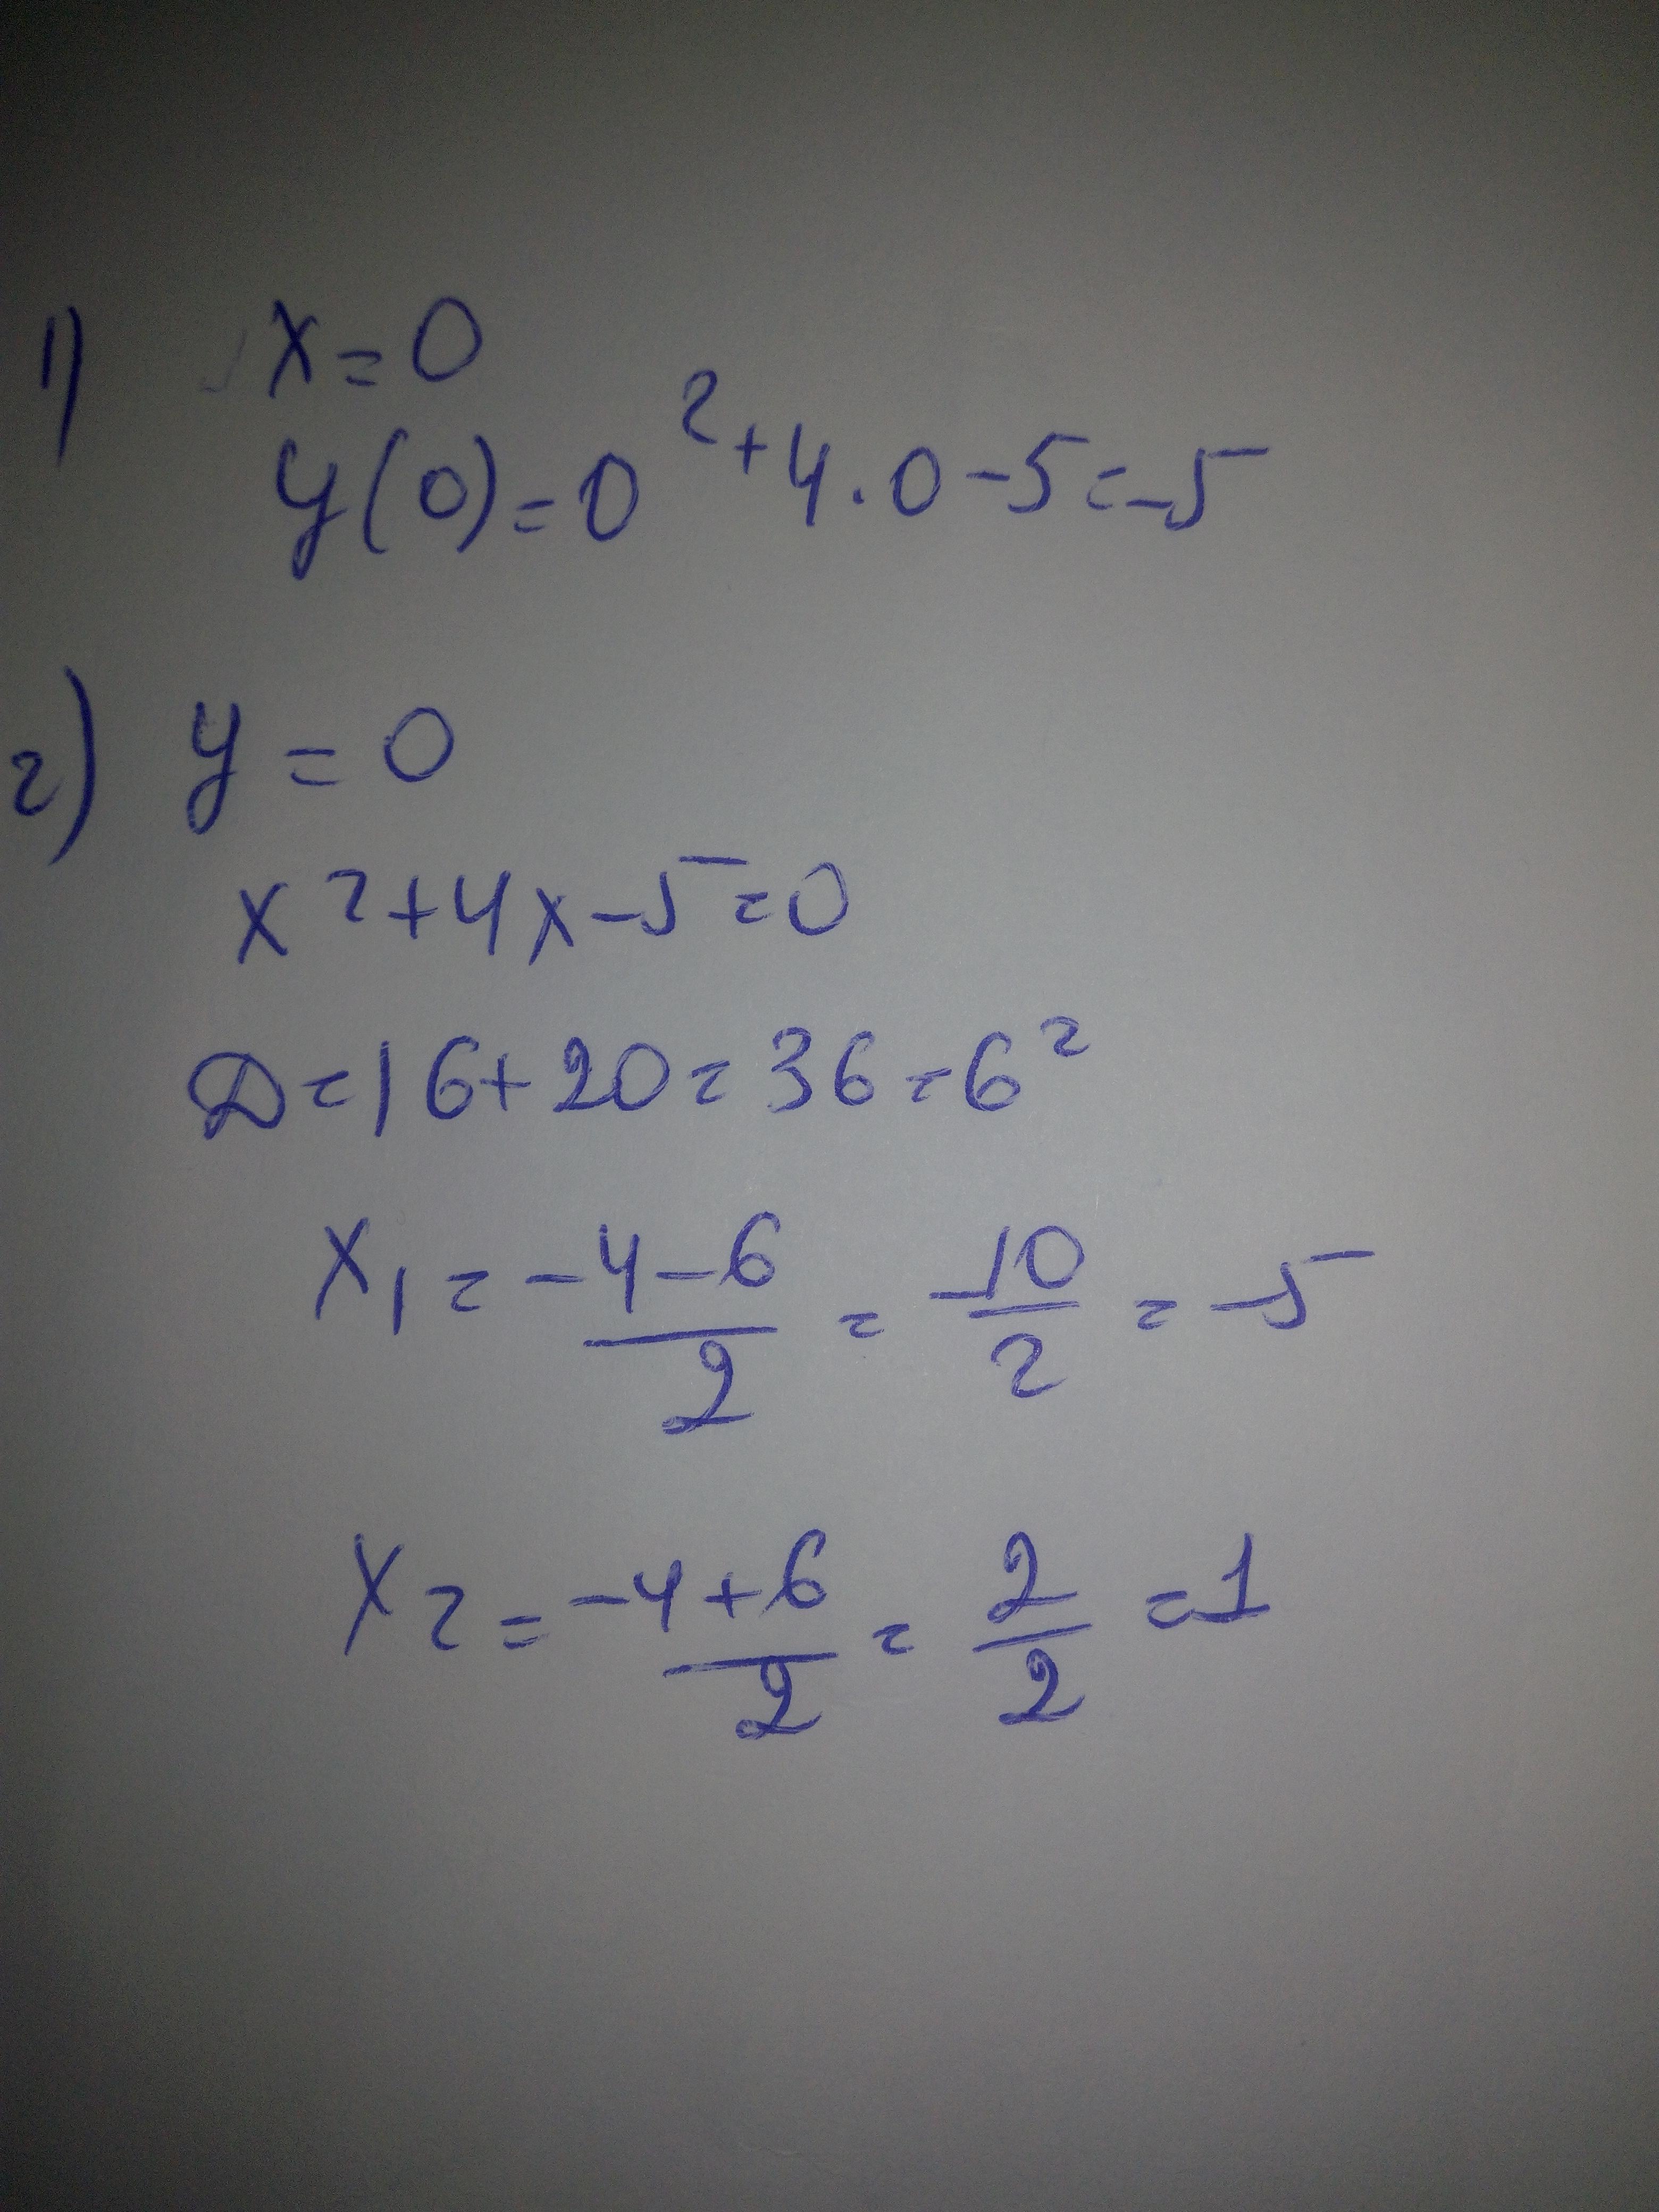 1) x = 0
y(0) = 0² + 4 · 0 - 5 = -5
2) y = 0
x² + 4x - 5 = 0
D = 16 + 20 = 36 = 6²
x₁ = (-4 - 6)/2 = -10/2 = -5
x₂ = (-4 + 6)/2 = 2/2 = 1